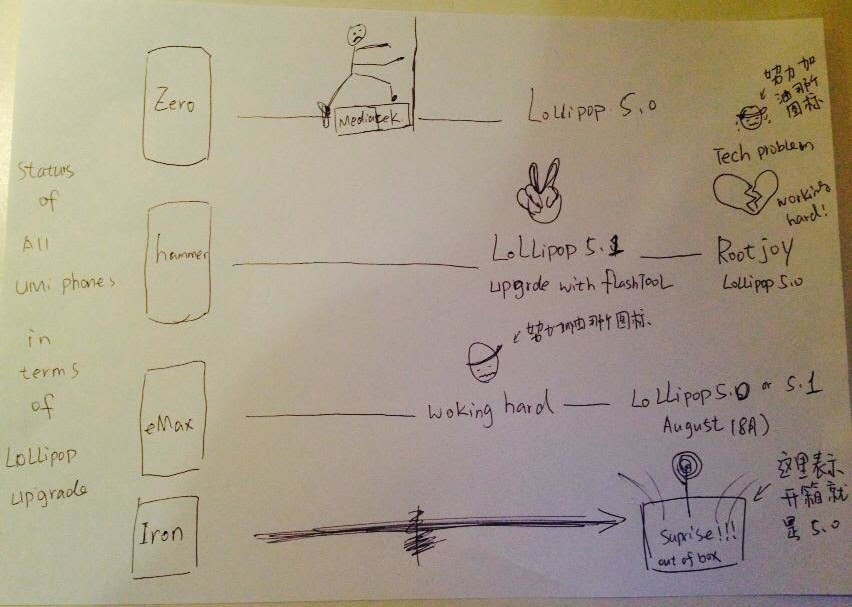 Status
of
All
umi phones
in
terms
of
LoLLipop
upgrade
Zero
Mediatek
LoLLipop 5.0
努力加
油那个
图标
Tech problem
working
hard!
hammer
LoLLipop 5.1
upgrde with flashTooL
Rootjoy
LoLLipop 5.0
努力加油那个图标
eMax
woking hard
LoLLipop 5.0 or 5.1
August 18(A)
Iron
Suprise!!!
out of box
这里表示
开箱就
是 5.0